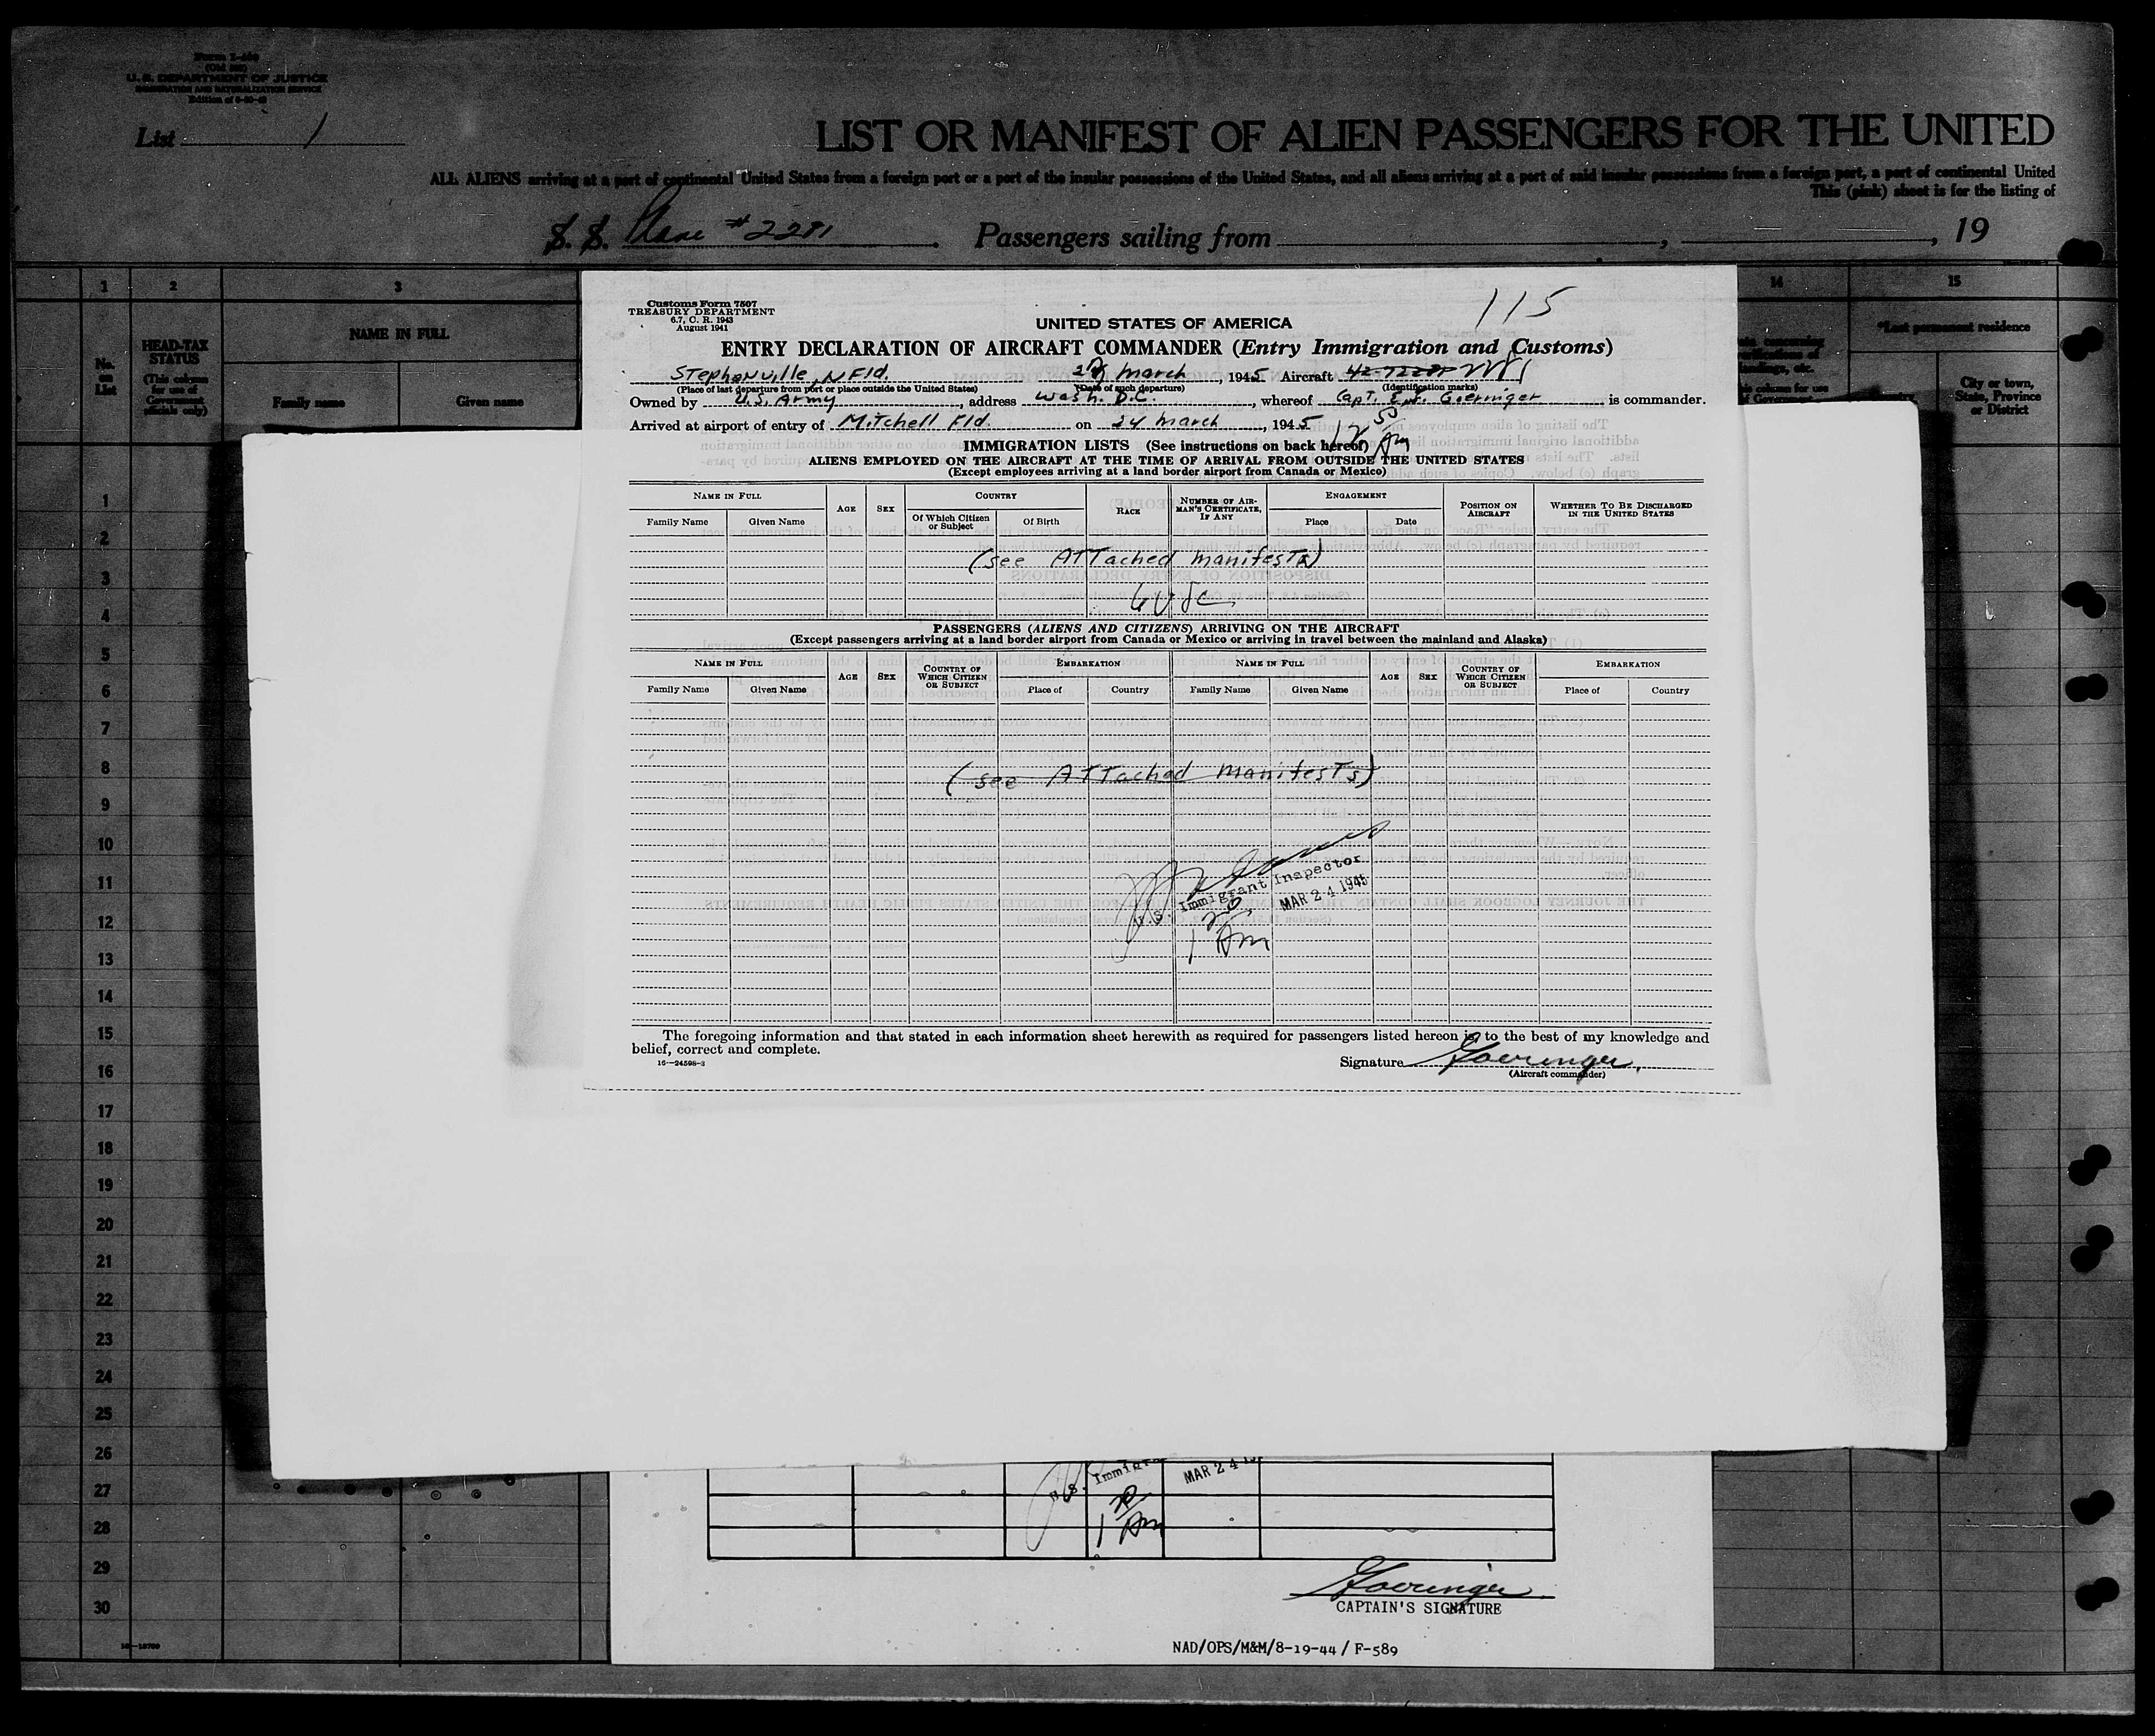 Form I-466
(Old 500)
U. S. DEPARTMENT OF JUSTICE
IMMIGRATION AND NATURALIZATION SERVICE
List 1
LIST OR MANIFEST OF ALIEN PASSENGERS FOR THE UNITED
ALL ALIENS arriving at a port of continental United States from a foreign port or a port of the insular possessions of the United States, and all aliens arriving at a port of said insular possessions from a foreign port, a port of continental United
This (pink) sheet is for the listing of
S. S. Plane #2281 Passengers sailing from , , 19
1 2 3 14 15
No. on List
HEAD-TAX STATUS
(This column for use of Government officials only)
NAME IN FULL
Family name Given name
*Last permanent residence
City or town, State, Province or District
1
2
3
4
5
6
7
8
9
10
11
12
13
14
15
16
17
18
19
20
21
22
23
24
25
26
27
28
29
30
Customs Form 7507
TREASURY DEPARTMENT
6.7, C. R. 1943
August 1941
115
UNITED STATES OF AMERICA
ENTRY DECLARATION OF AIRCRAFT COMMANDER (Entry Immigration and Customs)
Stephenville, Nfld. March, 1945 Aircraft
(Place of last departure from port or place outside the United States) (Date of such departure) (Identification marks)
Owned by U.S. Army, address Wash. D.C., whereof Capt. E.J. Goeringer is commander.
Arrived at airport of entry of Mitchell Fld. on 24 March, 1945
12 50 Am
IMMIGRATION LISTS (See instructions on back hereof)
ALIENS EMPLOYED ON THE AIRCRAFT AT THE TIME OF ARRIVAL FROM OUTSIDE THE UNITED STATES
(Except employees arriving at a land border airport from Canada or Mexico)
NAME IN FULL AGE SEX COUNTRY RACE NUMBER OF AIRMAN'S CERTIFICATE, IF ANY ENGAGEMENT POSITION ON AIRCRAFT WHETHER TO BE DISCHARGED IN THE UNITED STATES
Family Name Given Name Of Which Citizen or Subject Of Birth Place Date
(see ATTached manifests)
6 USC
PASSENGERS (ALIENS AND CITIZENS) ARRIVING ON THE AIRCRAFT
(Except passengers arriving at a land border airport from Canada or Mexico or arriving in travel between the mainland and Alaska)
NAME IN FULL AGE SEX COUNTRY OF WHICH CITIZEN OR SUBJECT EMBARKATION NAME IN FULL AGE SEX COUNTRY OF WHICH CITIZEN OR SUBJECT EMBARKATION
Family Name Given Name Place of Country Family Name Given Name Place of Country
(see ATTached manifests)
U.S. Immigrant Inspector
MAR 24 1945
1 20 Am
The foregoing information and that stated in each information sheet herewith as required for passengers listed hereon is to the best of my knowledge and
belief, correct and complete.
16—24598-3
Signature Goeringer
(Aircraft commander)
U.S. Immigra
MAR 24 19
1 20 Am
Goeringer
CAPTAIN'S SIGNATURE
NAD/OPS/M&M/8-19-44 / F-589